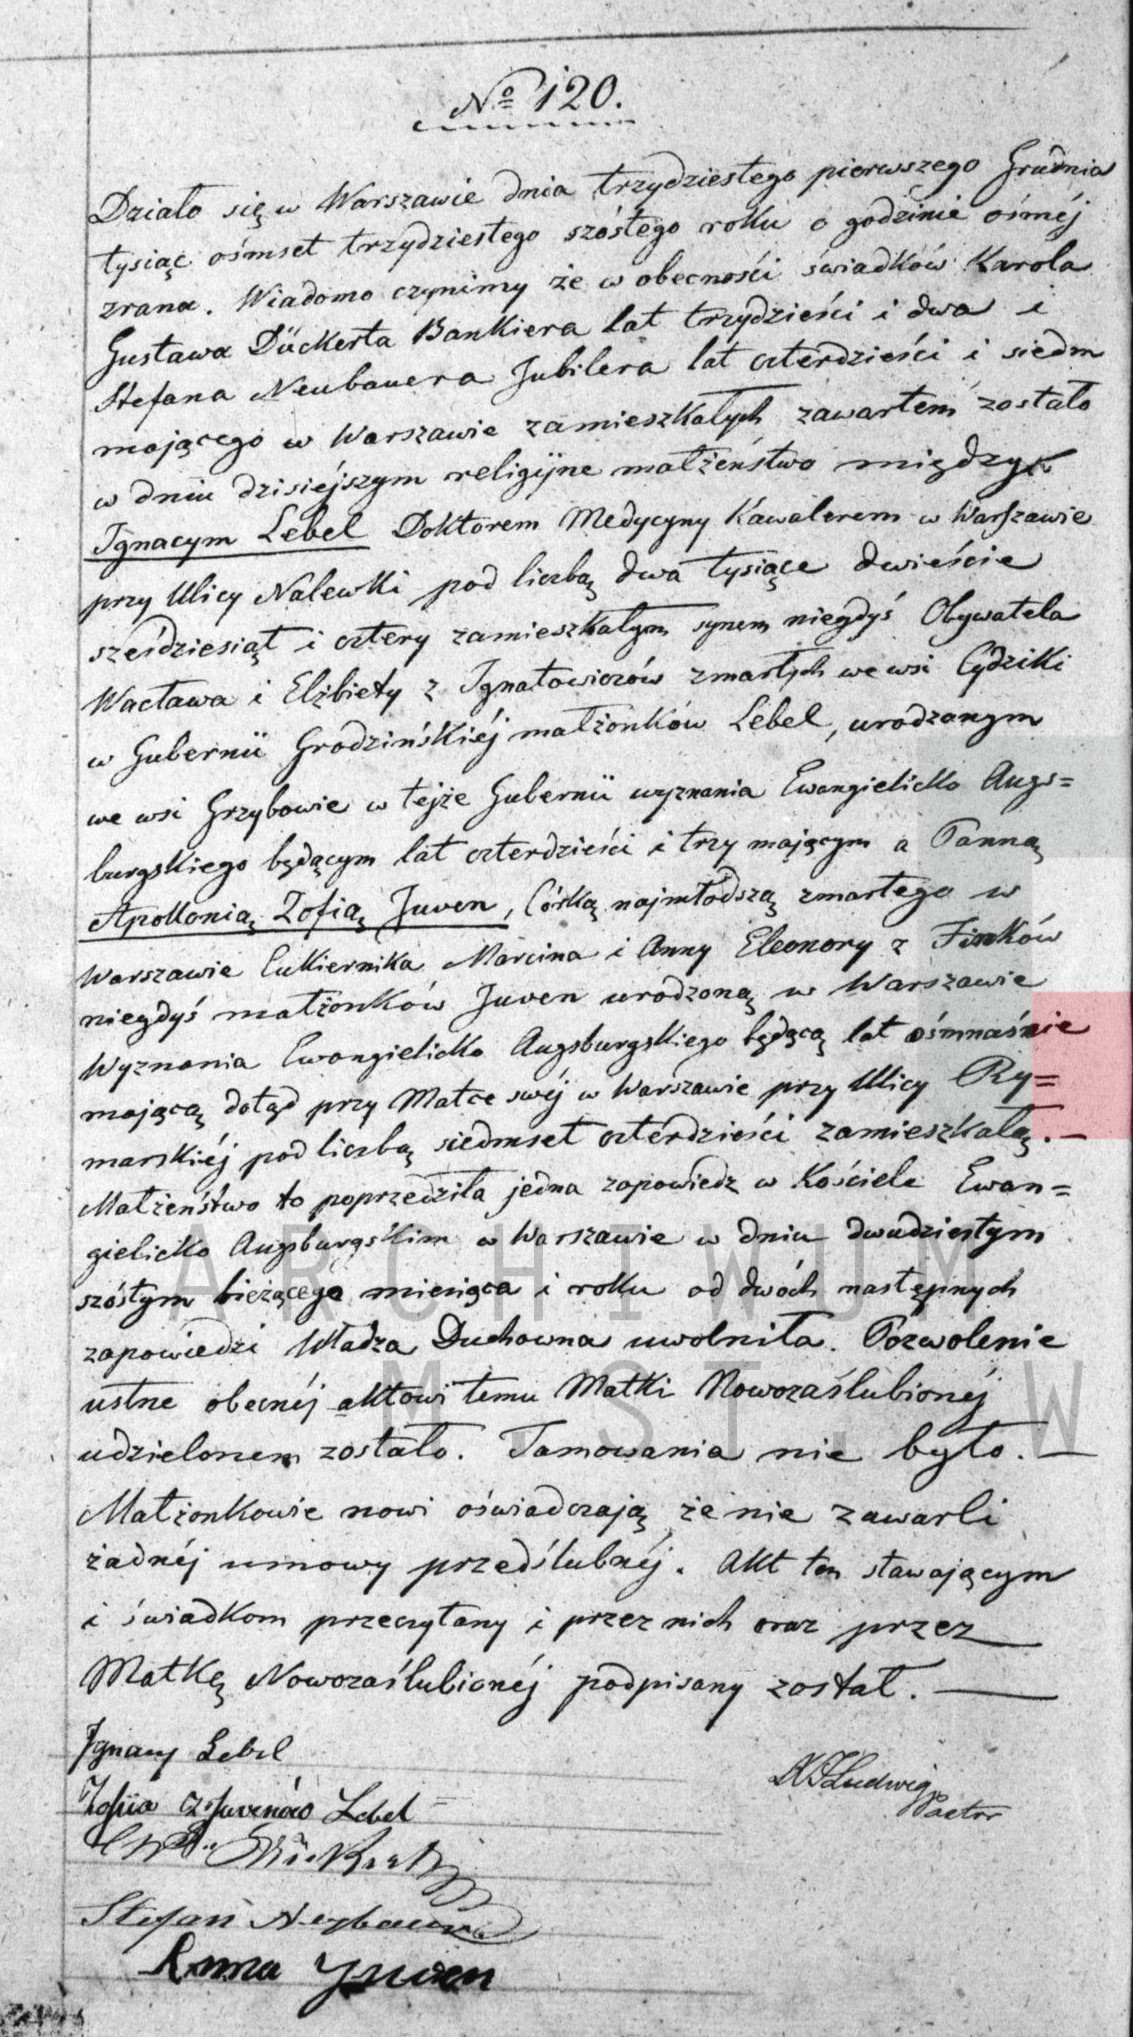 No 120.
Działo się w Warszawie dnia trzydziestego pierwszego Grudnia
tysiąc ośmset trzydziestego szóstego roku o godzinie ósméj
zrana. Wiadomo czynimy że w obecności świadków Karola
Gustawa Dückerta Bankiera lat trzydzieści i dwa i
Stefana Neubauera Jubilera lat czterdzieści i siedm
mającego w Warszawie zamieszkałych zawartem zostało
w dniu dzisiéjszym religijne małżeństwo między
Ignacym Lebel Doktorem Medycyny Kawalerem w Warszawie
przy Ulicy Nalewki pod liczbą dwa tysiące dwieście
sześdziesiąt i cztery zamieszkałym synem niegdyś Obywatela
Wacława i Elżbiety z Ignatowiczów zmarłych we wsi Cydziki
w Gubernii Grodzińskiéj małżonków Lebel, urodzonym
we wsi Grzybowie w tejże Gubernii wyznania Ewangielicko Augs=
burgskiego będącym lat czterdzieści i trzy mającym a Panną
Apollonią Zofią Juven, Córką najmłodszą zmarłego w
Warszawie Cukiernika Marcina i Anny Eleonory z Finków
niegdyś małżonków Juven urodzoną w Warszawie
Wyznania Ewangielicko Augsburgskiego będącą lat ośmnaście
mającą dotąd przy Matce swéj w Warszawie przy Ulicy Ry=
marskiéj pod liczbą siedmset czterdzieści zamieszkałą.
Małżeństwo to poprzedziła jedna zapowiedz w Kościele Ewan=
gielicko Augsburgskim w Warszawie w dniu dwudziestym
szóstym bieżącego miesiąca i roku od dwóch następnych
zapowiedzi Władza Duchowna uwolniła. Pozwolenie
ustne obecnéj aktowi temu Matki Nowozaślubionéj
udzielonem zostało. Tamowania nie było.
Małżonkowie nowi oświadczają że nie zawarli
żadnéj umowy przedślubnéj. Akt ten stawającym
i świadkom przeczytany i przez nich oraz przez
Matkę Nowozaślubionéj podpisany został.
Ignacy Lebel
Zofija z Juvenów Lebel
Ludwig
Pastor
Dückert
Stefan Neybauer
Anna Juven
ARCHIWUM
M. ST. W